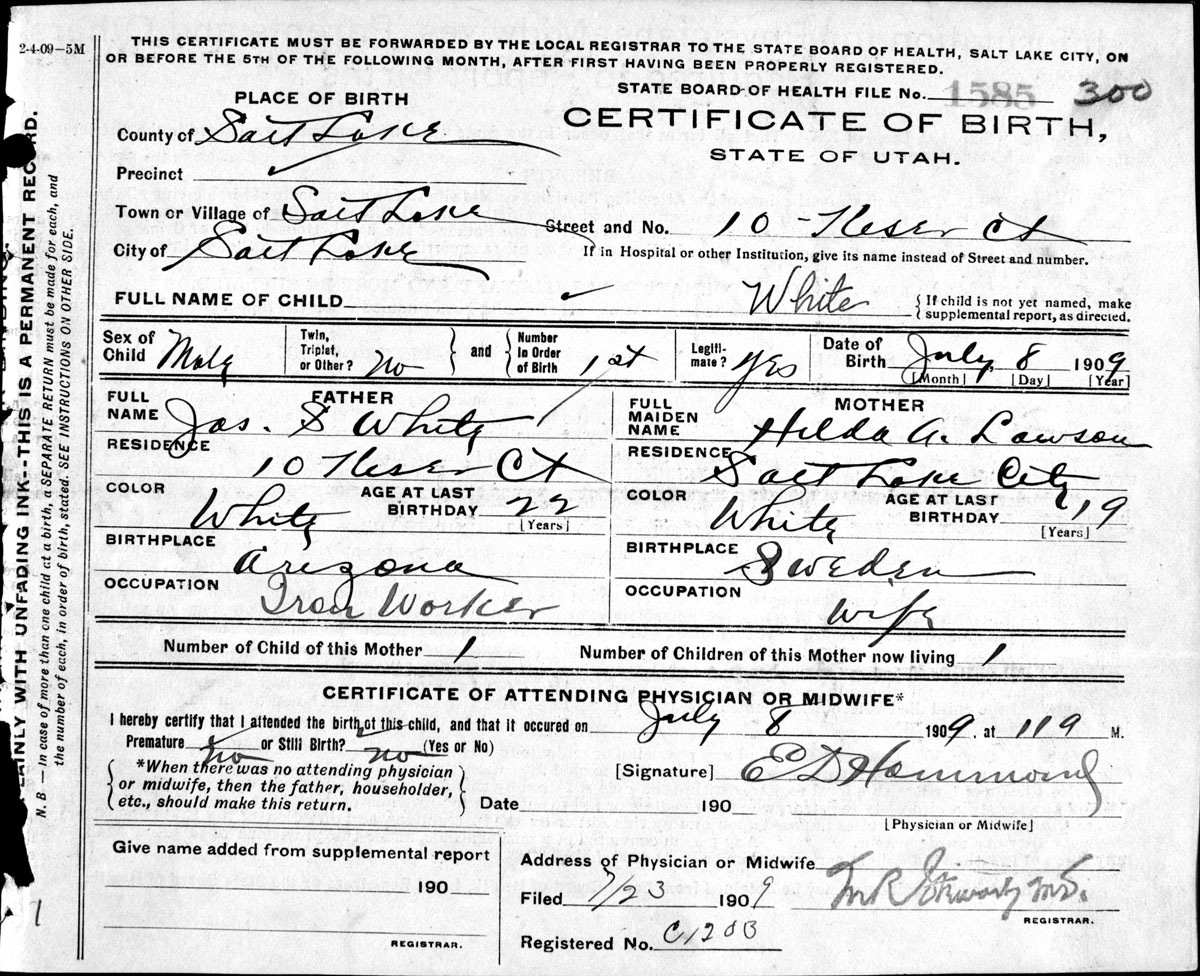 2-4-09—5M
THIS CERTIFICATE MUST BE FORWARDED BY THE LOCAL REGISTRAR TO THE STATE BOARD OF HEALTH, SALT LAKE CITY, ON
OR BEFORE THE 5TH OF THE FOLLOWING MONTH, AFTER FIRST HAVING BEEN PROPERLY REGISTERED.
STATE BOARD OF HEALTH FILE No. 1585 300
PLACE OF BIRTH
CERTIFICATE OF BIRTH,
STATE OF UTAH.
County of Salt Lake
Precinct
Town or Village of Salt Lake
Street and No. 10 - Keser Ct
City of Salt Lake
If in Hospital or other Institution, give its name instead of Street and number.
FULL NAME OF CHILD White { If child is not yet named, make
supplemental report, as directed.
Sex of Child Male Twin, Triplet, or Other? No } and { Number in Order of Birth 1st Legitimate? Yes Date of Birth July 8 1909
[Month] [Day] [Year]
FATHER
FULL NAME Jas. S White
RESIDENCE 10 Keser Ct
COLOR White AGE AT LAST BIRTHDAY 22
[Years]
BIRTHPLACE Arizona
OCCUPATION Iron Worker
MOTHER
FULL MAIDEN NAME Hilda A. Lawson
RESIDENCE Salt Lake City
COLOR White AGE AT LAST BIRTHDAY 19
[Years]
BIRTHPLACE Sweden
OCCUPATION Wife
Number of Child of this Mother 1 Number of Children of this Mother now living 1
CERTIFICATE OF ATTENDING PHYSICIAN OR MIDWIFE*
I hereby certify that I attended the birth of this child, and that it occured on July 8 1909. at 119 M.
Premature No or Still Birth? no (Yes or No)
{ *When there was no attending physician
or midwife, then the father, householder,
etc., should make this return. }
[Signature] E D Hammond
Date 190
[Physician or Midwife]
Give name added from supplemental report
190
REGISTRAR.
Address of Physician or Midwife
Filed 7/23 1909
REGISTRAR.
Registered No. C1203
LAINLY WITH UNFADING INK--THIS IS A PERMANENT RECORD.
N. B.—In case of more than one child at a birth, a SEPARATE RETURN must be made for each, and
the number of each, in order of birth, stated. SEE INSTRUCTIONS ON OTHER SIDE.